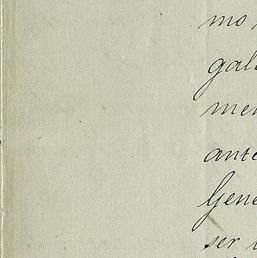 mo
gal
me
ante
Gene
ser